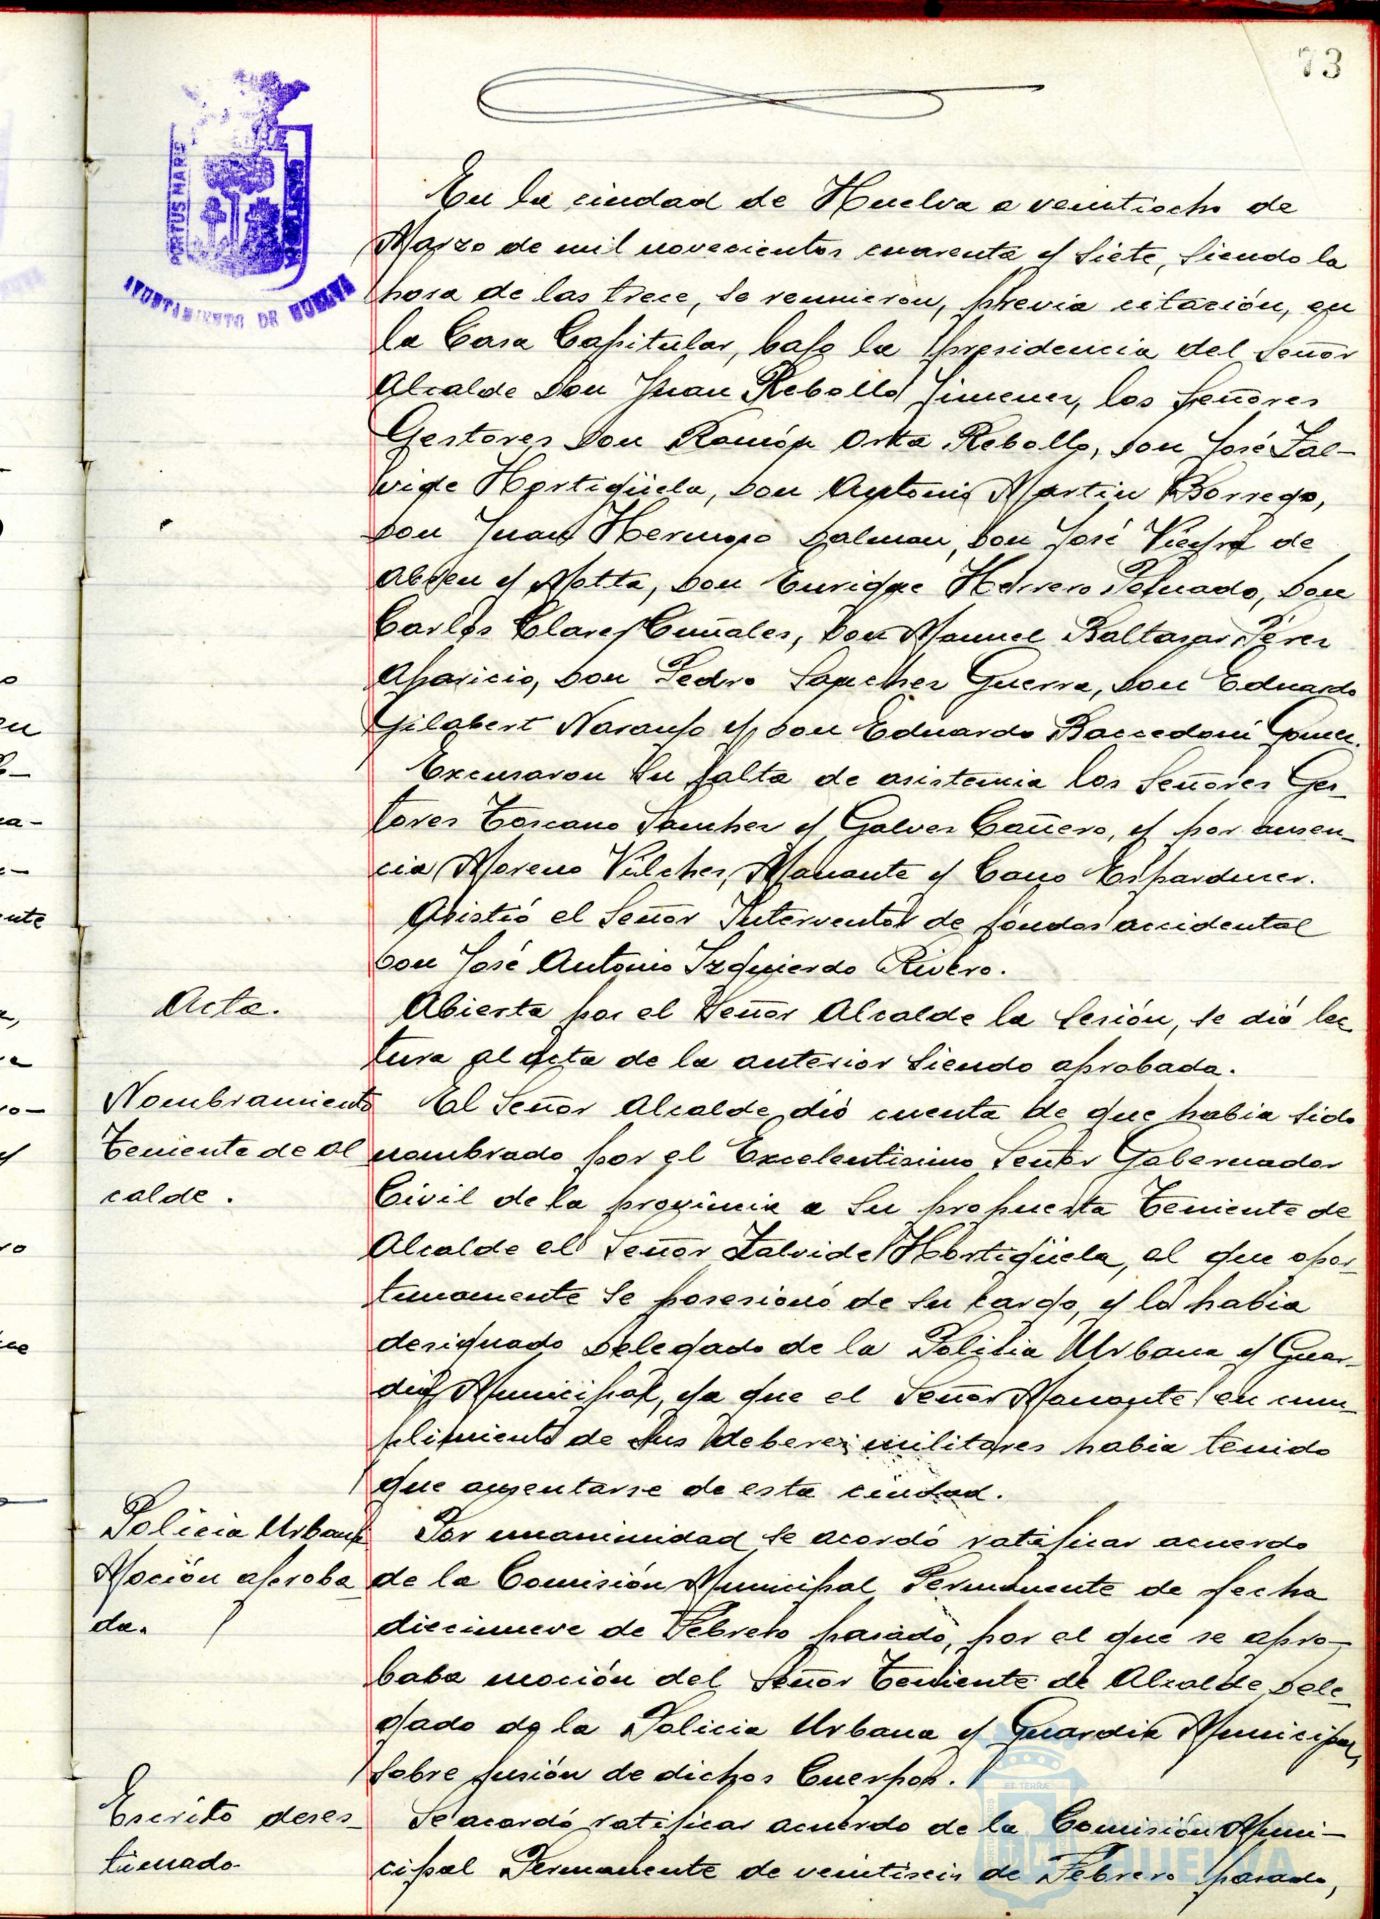 73
PORTUS MARIS
AYUNTAMIENTO DE HUELVA
En la ciudad de Huelva a veintiocho de
Marzo de mil novecientos cuarenta y siete, siendo la
hora de las trece, se reunieron, previa citación, en
la Casa Capitular, bajo la presidencia del Señor
Alcalde Don Juan Rebollo Jimenez, los Señores
Gestores Don Ramón Orta Rebollo, Don José Zal-
vide Hortigüela, Don Antonio Martin Borrego,
Don Juan Hermoso Dalman, Don José Vieyra de
Abreu y Motta, Don Enrique Herrero Peinado, Don
Carlos Clarey Cuñales, Don Manuel Baltasar Pérez
Aparicio, Don Pedro Sanchez Guerra, Don Eduardo
Gilabert Naranjo y Don Eduardo Baccedoni Gomez.
Excusaron su falta de asistencia los Señores Ges-
tores Toscano Sanchez y Galvez Cañero, y por ausen-
cia Moreno Vilchez, Manante y Cano Esparduzer.
Asistió el Señor Interventor de fondos accidental
Don José Antonio Izquierdo Rivero.
Acta.
Abierta por el Señor Alcalde la sesión, se dió lec
tura al acta de la anterior siendo aprobada.
Nombramiento
Teniente de Al
calde.
El Señor Alcalde dió cuenta de que habia sido
nombrado por el Excelentisimo Señor Gobernador
Civil de la provincia a su propuesta Teniente de
Alcalde el Señor Zalvide Hortigüela, al que opor-
tunamente se posesionó de su cargo, y lo habia
designado Delegado de la Policia Urbana y Guar-
dia Municipal, ya que el Señor Manante en cum-
plimiento de sus deberes militares habia tenido
que ausentarse de esta ciudad.
Policia Urbana
Moción aproba
da.
Por unanimidad se acordó ratificar acuerdo
de la Comisión Municipal Permanente de fecha
diecinueve de Febrero pasado, por el que se apro-
baba moción del Señor Teniente de Alcalde Dele-
gado de la Policia Urbana y Guardia Municipal,
sobre fusión de dichos Cuerpos.
Escrito deses-
timado
Se acordó ratificar acuerdo de la Comisión Muni-
cipal Permanente de veintiseis de Febrero pasado,
HUELVA